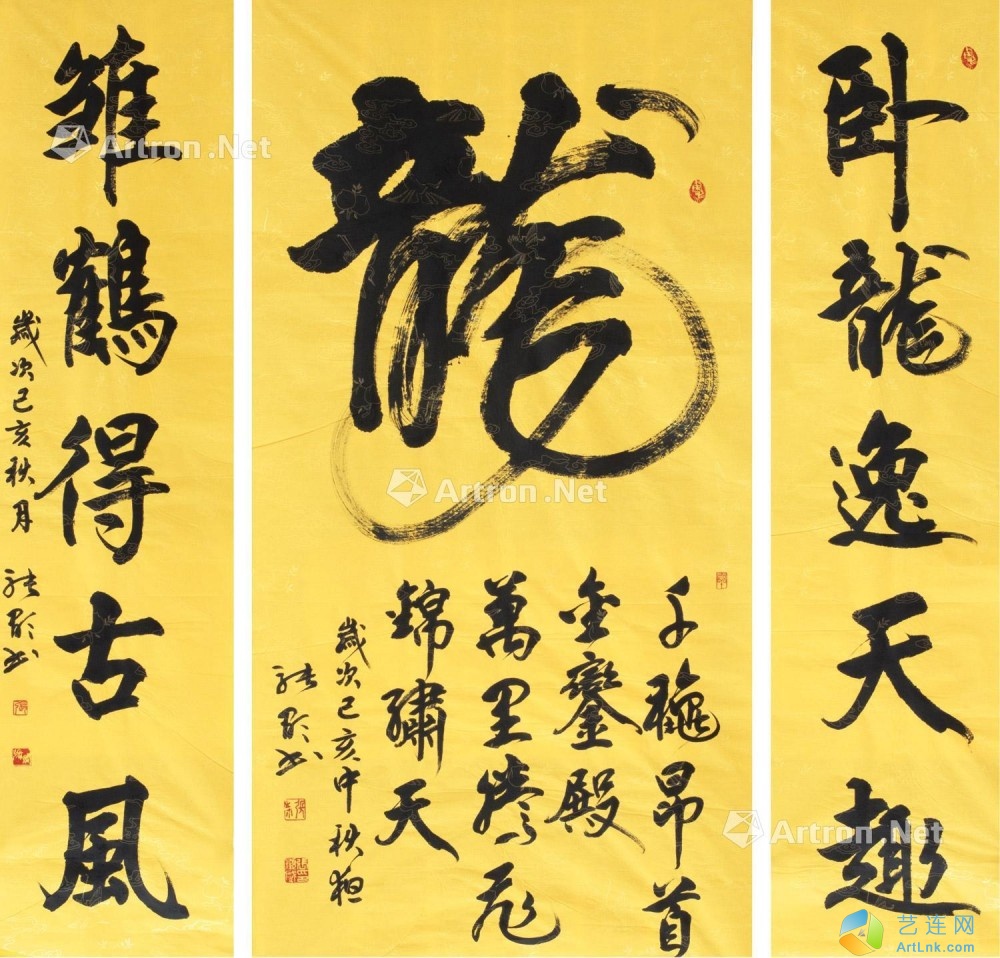 卧龍逸天趣
龍
千龝昂首
金鑾殿
萬里騰飛
錦繡天
歲次己亥中秋
雏鶴得古風
歲次己亥秋月
Artron.Net
Artron.Net
Artron.Net
艺连网
ArtLnk.com